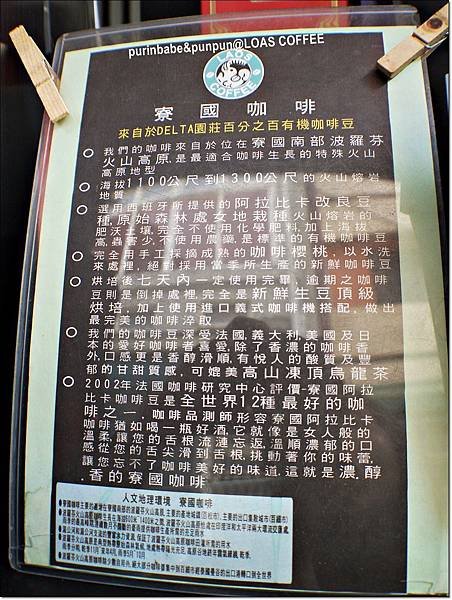 purinbabe&punpun@LOAS COFFEE
LAOS
COFFEE
寮國咖啡
來自於DELTA園莊百分之百有機咖啡豆
我們的咖啡來自於位在寮國南部波羅芬
火山高原,是最適合咖啡生長的特殊火山
高原地型
海拔1100公尺到1300公尺的火山熔岩
地質
選用西班牙所提供的阿拉比卡改良豆
種,原始森林處女地栽種火山熔岩的
肥沃土壤,完全不使用化學肥料,加上海拔
高,蟲害少,不使用農藥,是標準的有機咖啡豆
完全用手工採摘成熟的咖啡櫻桃,以水洗
來處裡,絕對採用當季所生產的新鮮咖啡豆
烘培後七天內一定使用完畢,逾期之咖啡
豆則是倒掉處裡,完全是新鮮生豆頂級
烘培,加上使用進口義式咖啡機搭配,做出
最完美的咖啡淬取
我們的咖啡豆深受法國,義大利,美國及日
本的愛好咖啡者喜愛,除了香濃的咖啡香
外,口感更是香醇滑順,有悅人的酸質及豐
郁的甘甜質感,可媲美高山凍頂烏龍茶
2002年法國咖啡研究中心評價-寮國阿拉
比卡咖啡豆是全世界12種最好的咖
啡之一,咖啡品測師形容寮國阿拉比卡
咖啡猶如喝一瓶好酒,它就像是女人般的
溫柔,讓您的舌根流漣忘返,溫順濃郁的口
感從您的舌尖滑到舌根,挑動著你的味蕾,
讓您忘不了咖啡美好的味道,這就是濃.醇
.香的寮國咖啡
人文地理環境 寮國咖啡